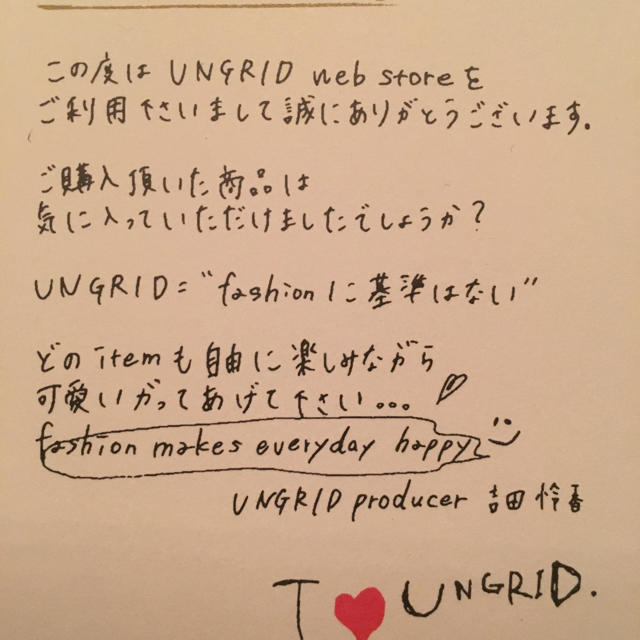 この度は UNGRID web storeを
ご利用下さいまして誠にありがとうございます.
ご購入頂いた商品は
気に入っていただけましたでしょうか?
UNGRID = "fashionに基準はない"
どのitemも自由に楽しみながら
可愛いがってあげて下さい...
fashion makes everyday happy
UNGRID producer 吉田怜香
I ♥ UNGRID.